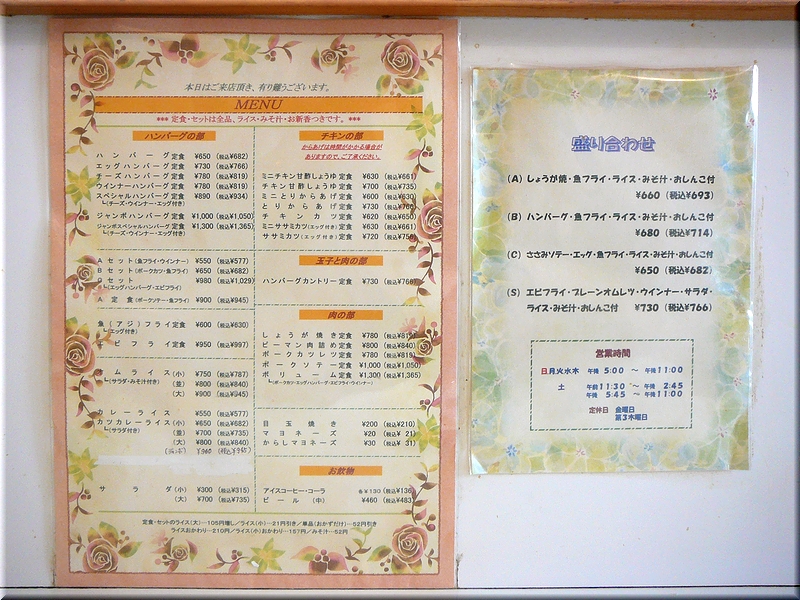 本日はご来店頂き、有り難うございます。
MENU
*** 定食・セットは全品、ライス・みそ汁・お新香つきです。 ***
ハンバーグの部
ハンバーグ定食 ¥650 (税込¥682)
エッグハンバーグ定食 ¥730 (税込¥766)
チーズハンバーグ定食 ¥780 (税込¥819)
ウインナーハンバーグ定食 ¥780 (税込¥819)
スペシャルハンバーグ定食 ¥890 (税込¥934)
┗(チーズ・ウインナー・エッグ付き)
ジャンボハンバーグ定食 ¥1,000 (税込¥1,050)
ジャンボスペシャルハンバーグ定食 ¥1,300 (税込¥1,365)
┗(チーズ・ウインナー・エッグ付き)
Aセット(魚フライ・ウインナー) ¥550 (税込¥577)
Bセット(ポークカツ・魚フライ) ¥650 (税込¥682)
セット ¥980 (税込¥1,029)
┗(エッグハンバーグ・エビフライ)
A定食(ポークソテー・魚フライ) ¥900 (税込¥945)
魚(アジ)フライ定食 ¥600 (税込¥630)
┗(エッグ付き)
エビフライ定食 ¥950 (税込¥997)
オムライス(小) ¥750 (税込¥787)
┗(サラダ・みそ汁付き) (並) ¥800 (税込¥840)
(大) ¥900 (税込¥945)
カレーライス ¥550 (税込¥577)
カツカレーライス(小) ¥650 (税込¥682)
┗(サラダ付き) (並) ¥700 (税込¥735)
(大) ¥800 (税込¥840)
サラダ(小) ¥300 (税込¥315)
(大) ¥700 (税込¥735)
チキンの部
からあげは時間がかかる場合が
ありますので、ご了承ください。
ミニチキン甘酢しょうゆ定食 ¥630 (税込¥661)
チキン甘酢しょうゆ定食 ¥700 (税込¥735)
ミニとりからあげ定食 ¥600 (税込¥630)
とりからあげ定食 ¥730 (税込¥766)
チキンカツ定食 ¥620 (税込¥650)
ミニササミカツ(エッグ付き)定食 ¥630 (税込¥661)
ササミカツ(エッグ付き)定食 ¥720 (税込¥756)
玉子と肉の部
ハンバーグカントリー定食 ¥730 (税込¥766)
肉の部
しょうが焼き定食 ¥780 (税込¥819)
ピーマン肉詰め定食 ¥800 (税込¥840)
ポークカツレツ定食 ¥780 (税込¥819)
ポークソテー定食 ¥1,000 (税込¥1,050)
ボリューム定食 ¥1,300 (税込¥1,365)
┗(ポークカツ・エッグハンバーグ・エビフライ・ウインナー)
目玉焼き ¥200 (税込¥210)
マヨネーズ ¥20 (税込¥ 21)
からしマヨネーズ ¥30 (税込¥ 31)
お飲物
アイスコーヒー・コーラ 各¥130 (税込¥136)
ビール(中) ¥460 (税込¥483)
定食・セットのライス(大)…105円増し/ライス(小)…21円引き/単品(おかずだけ)…52円引き
ライスおかわり…210円/ライス(小)おかわり…157円/みそ汁…52円
盛り合わせ
(A) しょうが焼・魚フライ・ライス・みそ汁・おしんこ付
¥660 (税込¥693)
(B) ハンバーグ・魚フライ・ライス・みそ汁・おしんこ付
¥680 (税込¥714)
(C) ささみソテー・エッグ・魚フライ・ライス・みそ汁・おしんこ付
¥650 (税込¥682)
(S) エビフライ・プレーンオムレツ・ウインナー・サラダ・
ライス・みそ汁・おしんこ付 ¥730 (税込¥766)
営業時間
日月火水木 午後 5:00 ～ 午後11:00
土 午前11:30 ～ 午後 2:45
午後 5:45 ～ 午後11:00
定休日 金曜日
第3木曜日